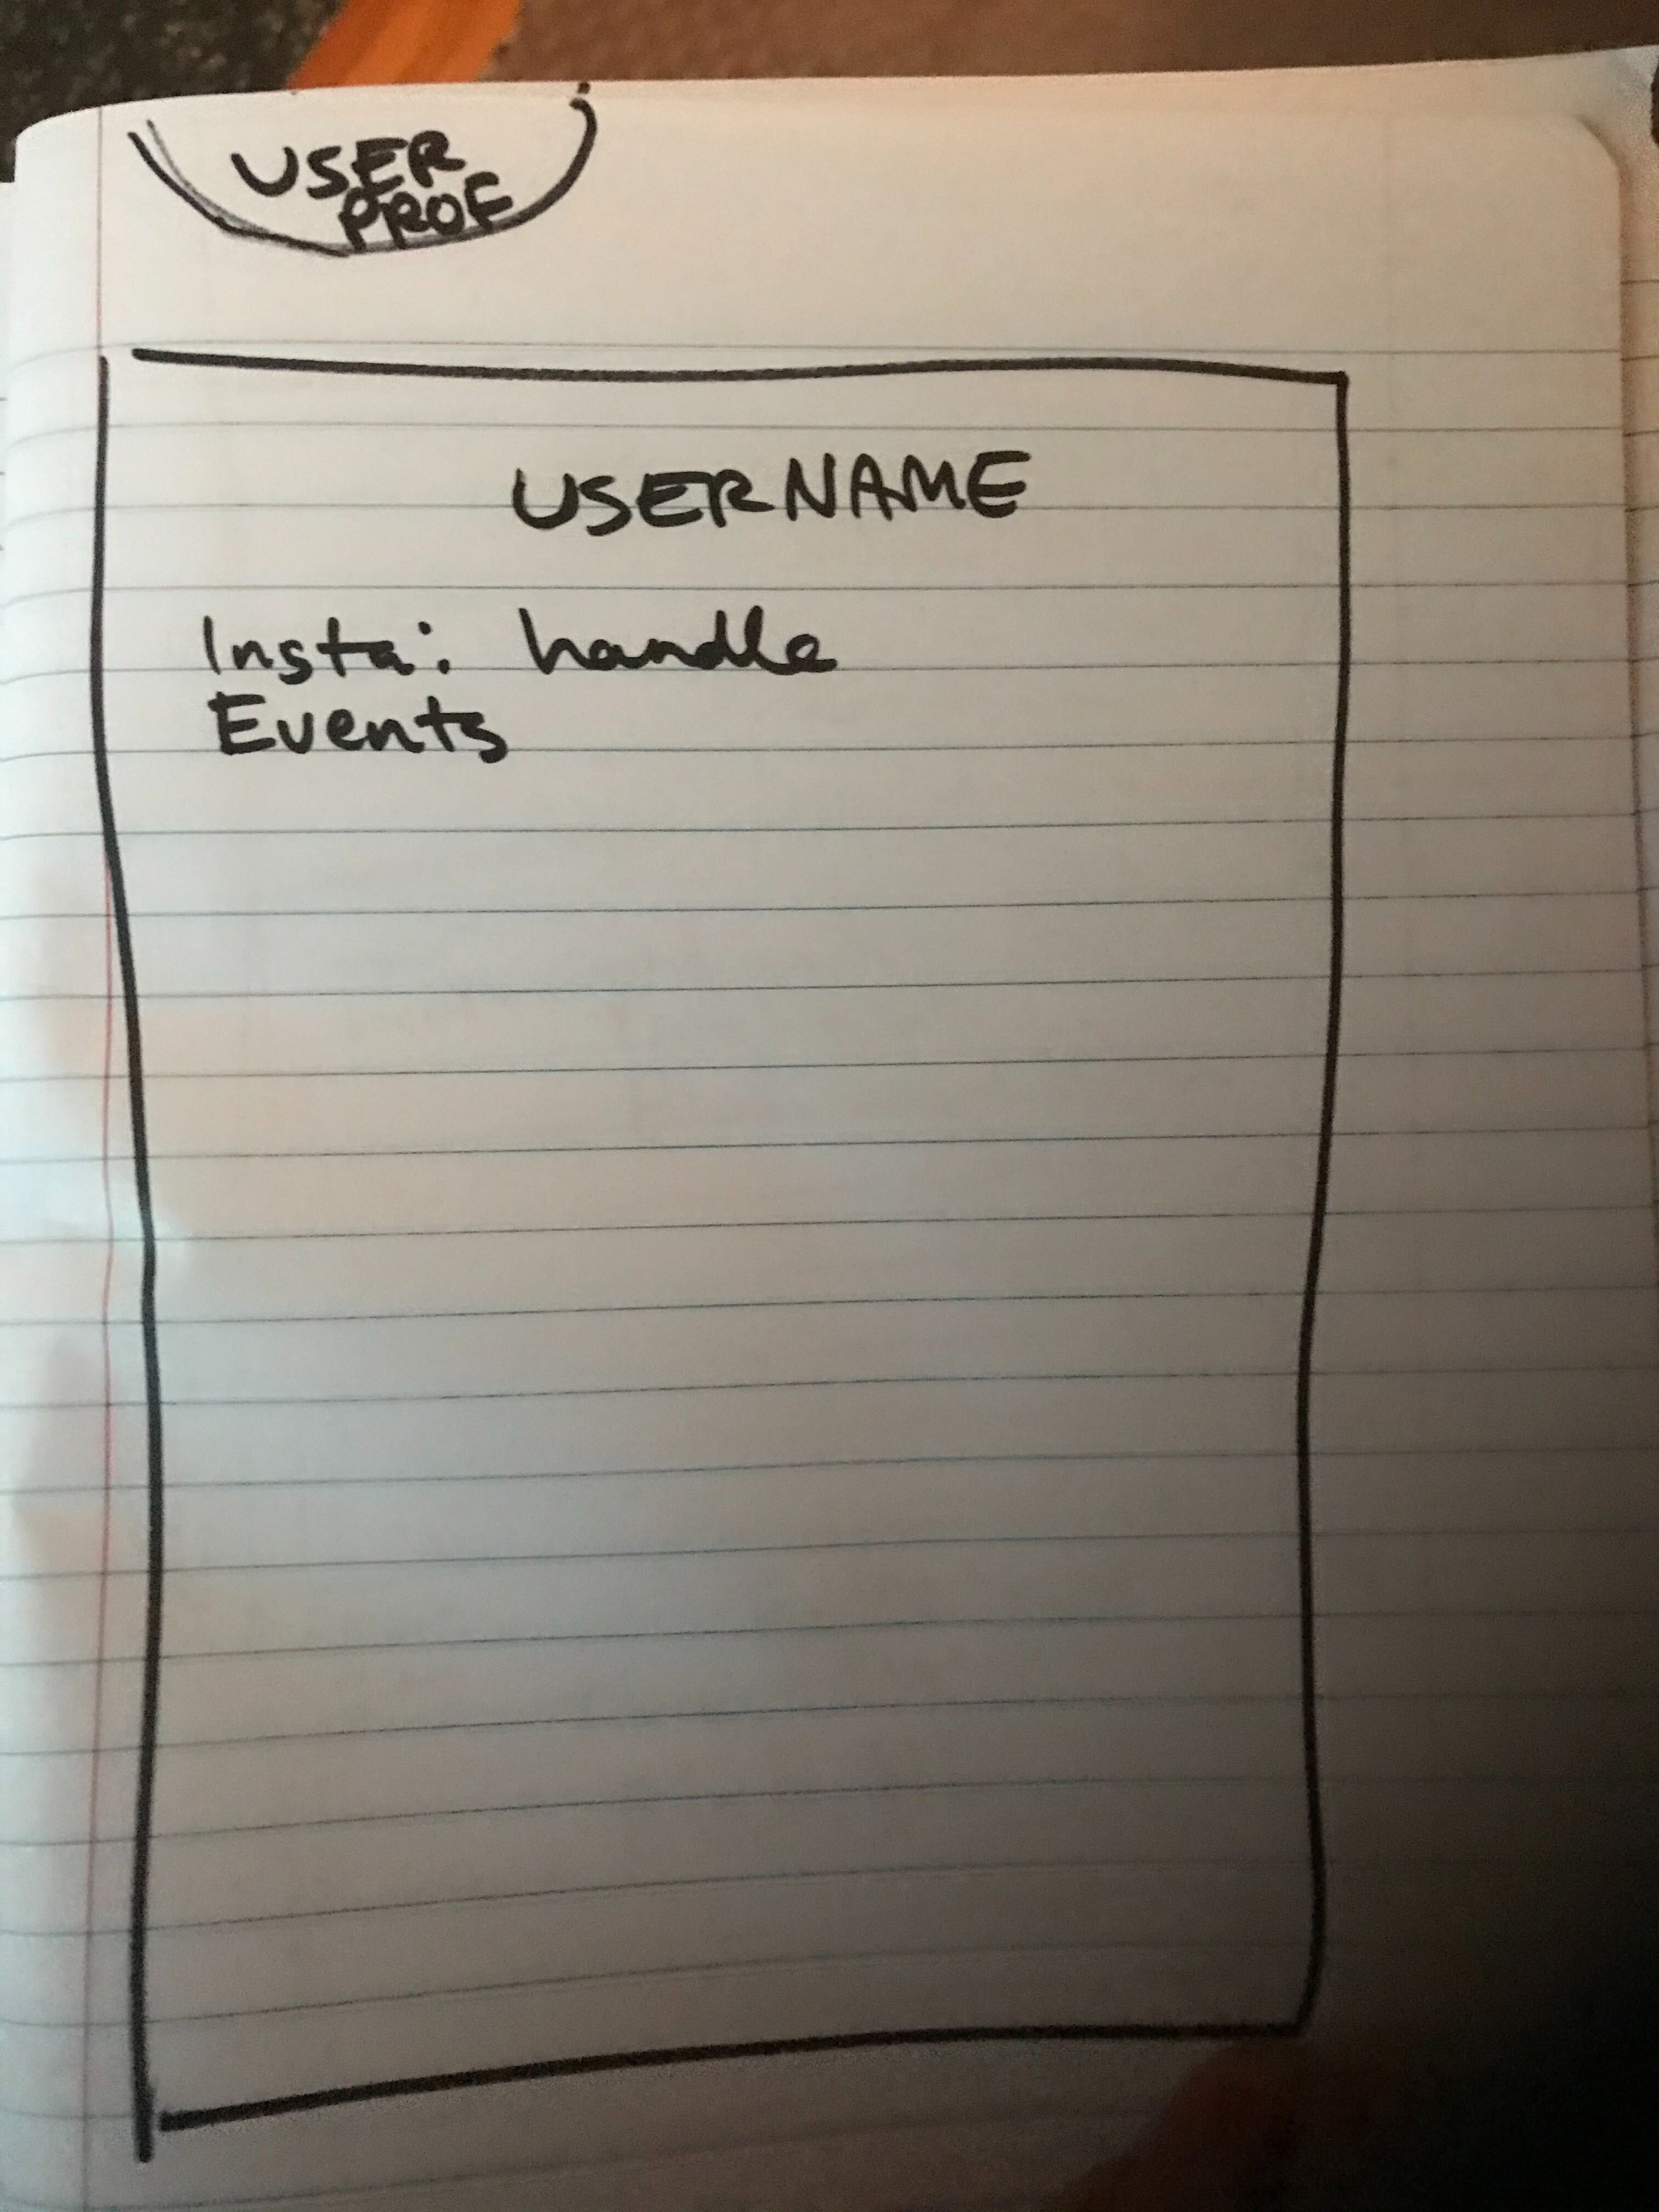 USER
PROF
USERNAME
Insta: handle
Events